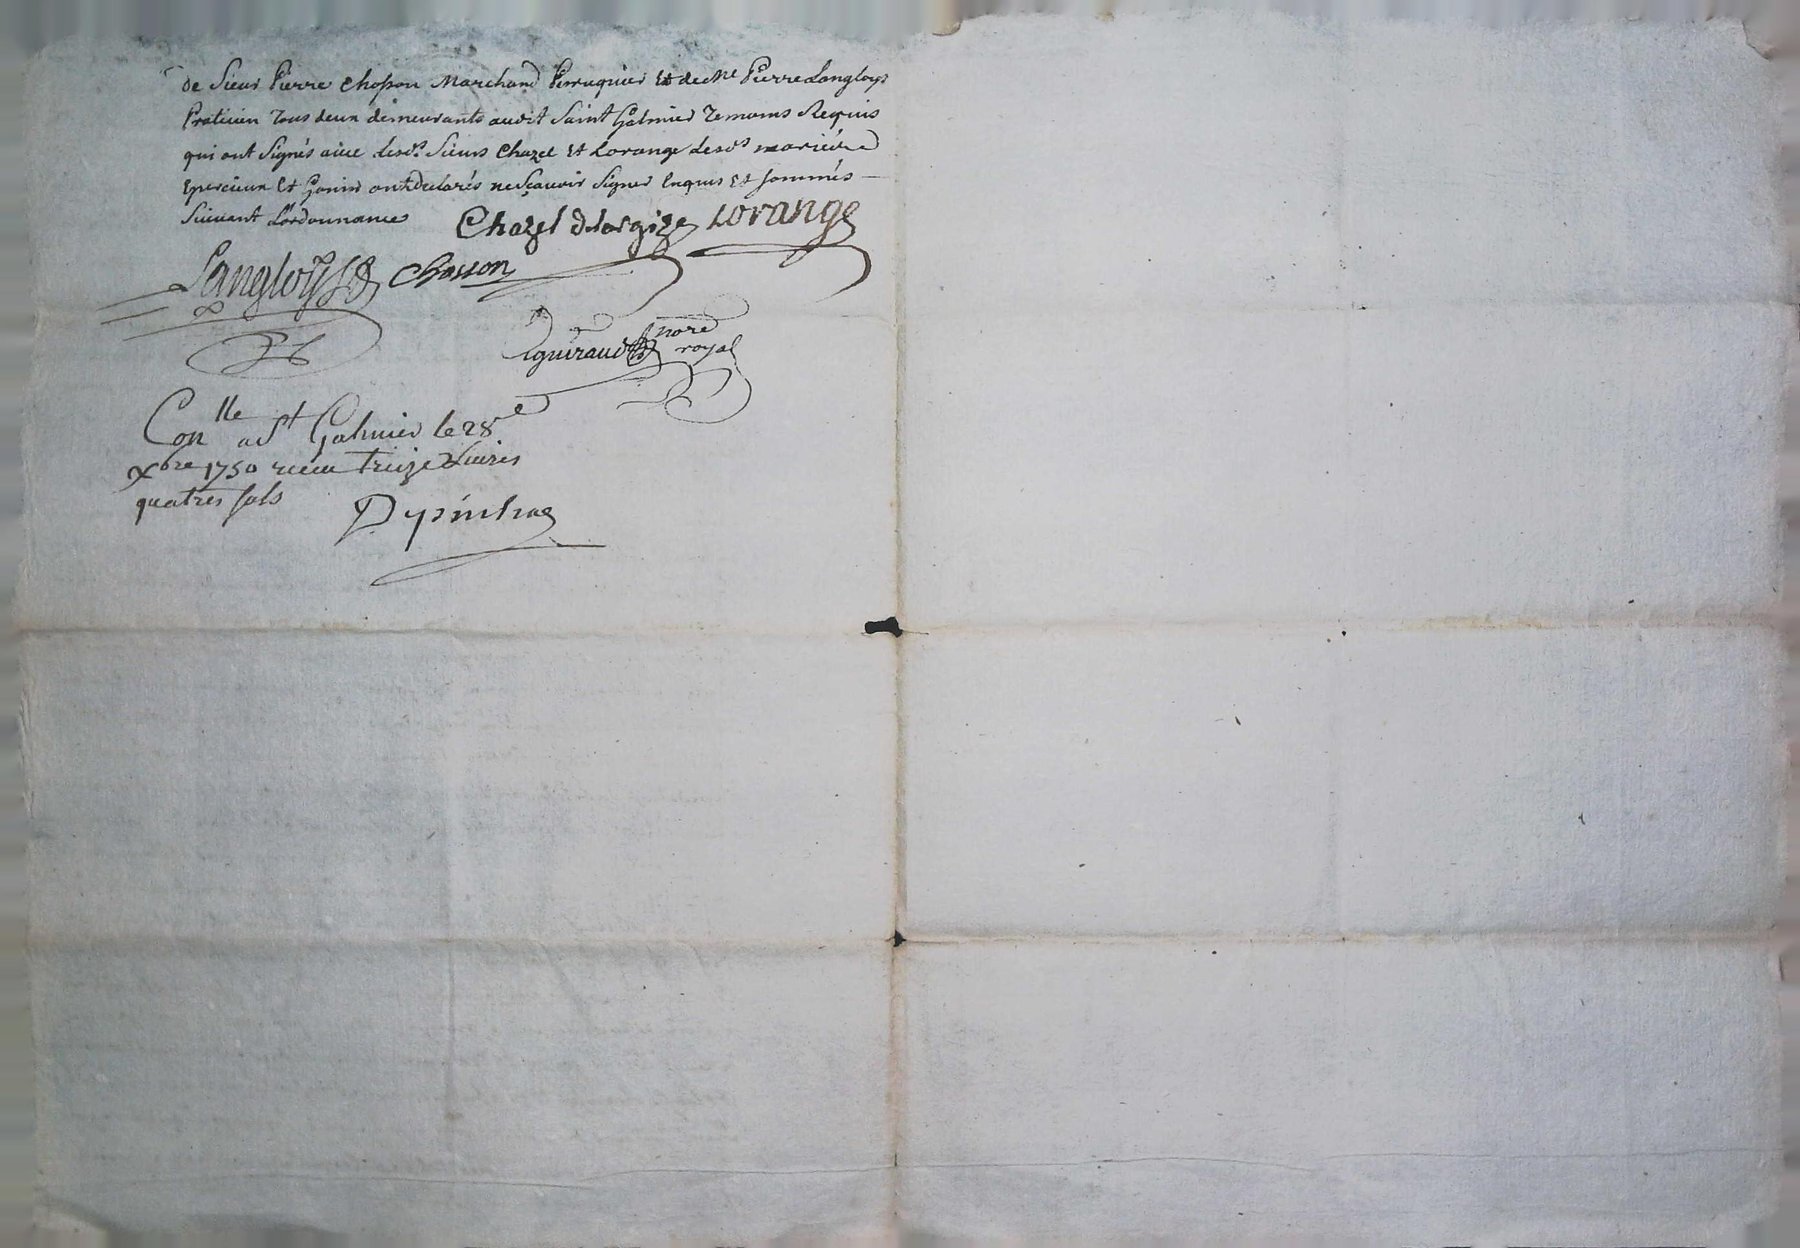 de Sieur Pierre Chosson Marchand Perruquier Et de Me Pierre Langloys
Praticien Tous deux demeurants audit Saint Galmier Temoins Requis
qui ont signés avec lesds. Sieurs Chazel Et Lorange lesds mariés
Epercieux Et Gonin ont declarés ne sçavoir signer Enquis Et sommés
suivant L'ordonnance Chazel Lorange
Langloys Chosson
guiraud nore
royal
Conlle a St Galmier le 28e
xbre 1750 receu treize Livres
quatres sols